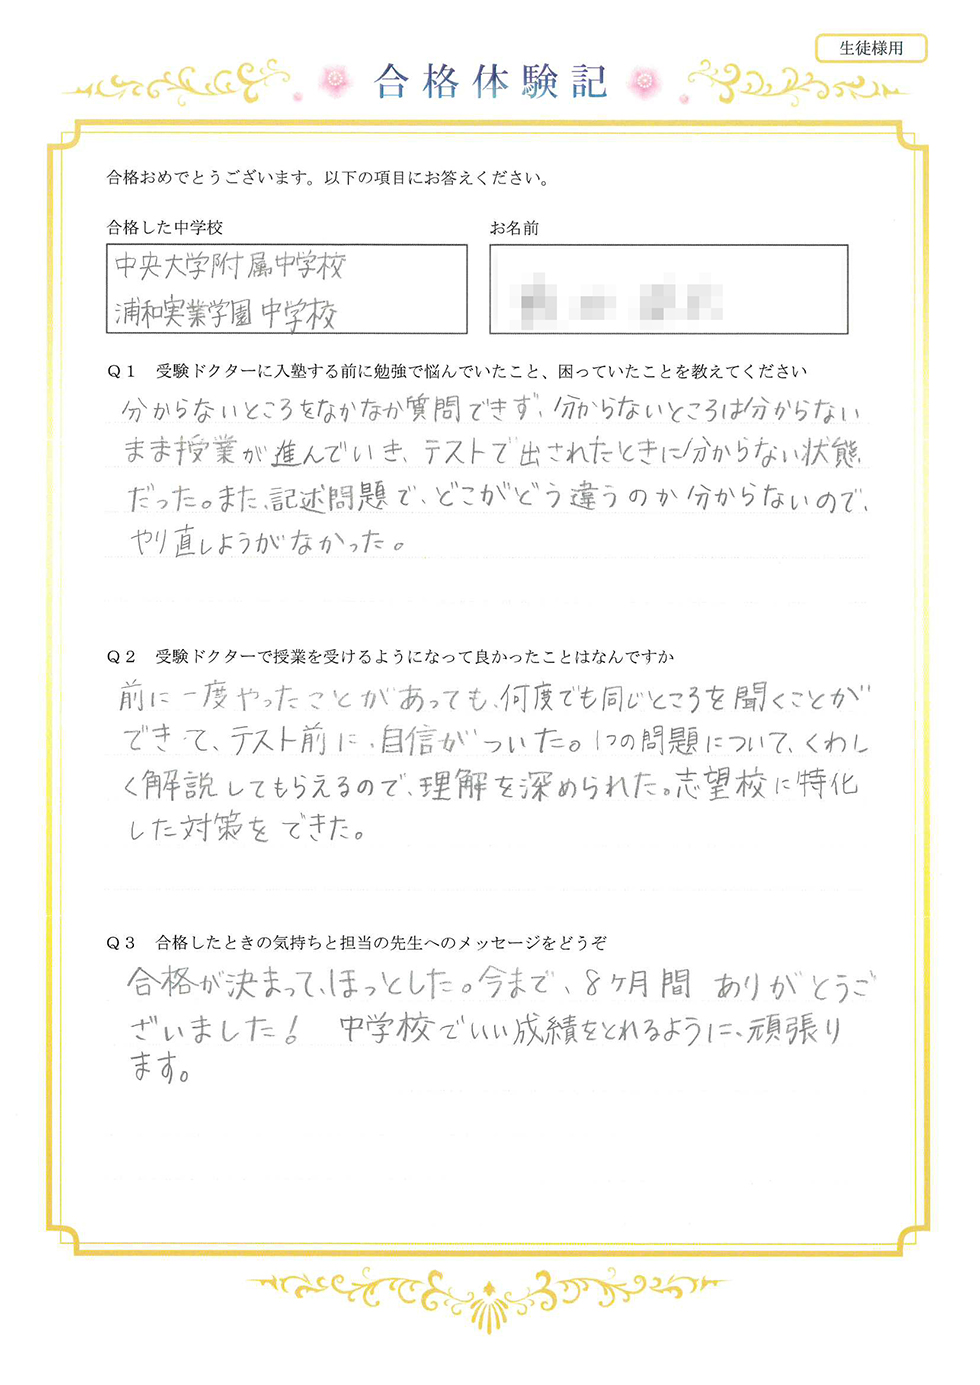 生徒様用
合格体験記
合格おめでとうございます。以下の項目にお答えください。
合格した中学校
お名前
中央大学附属中学校
浦和実業学園中学校
Q1 受験ドクターに入塾する前に勉強で悩んでいたこと、困っていたことを教えてください
分からないところをなかなか質問できず、分からないところは分からない
まま授業が進んでいき、テストで出されたときに分からない状態
だった。また、記述問題で、どこがどう違うのか分からないので、
やり直しようがなかった。
Q2 受験ドクターで授業を受けるようになって良かったことはなんですか
前に一度やったことがあっても、何度でも同じところを聞くことが
できて、テスト前に、自信がついた。1つの問題について、くわし
く解説してもらえるので、理解を深められた。志望校に特化
した対策をできた。
Q3 合格したときの気持ちと担当の先生へのメッセージをどうぞ
合格が決まって、ほっとした。今まで、8ヶ月間 ありがとうご
ざいました! 中学校でいい成績をとれるように、頑張り
ます。